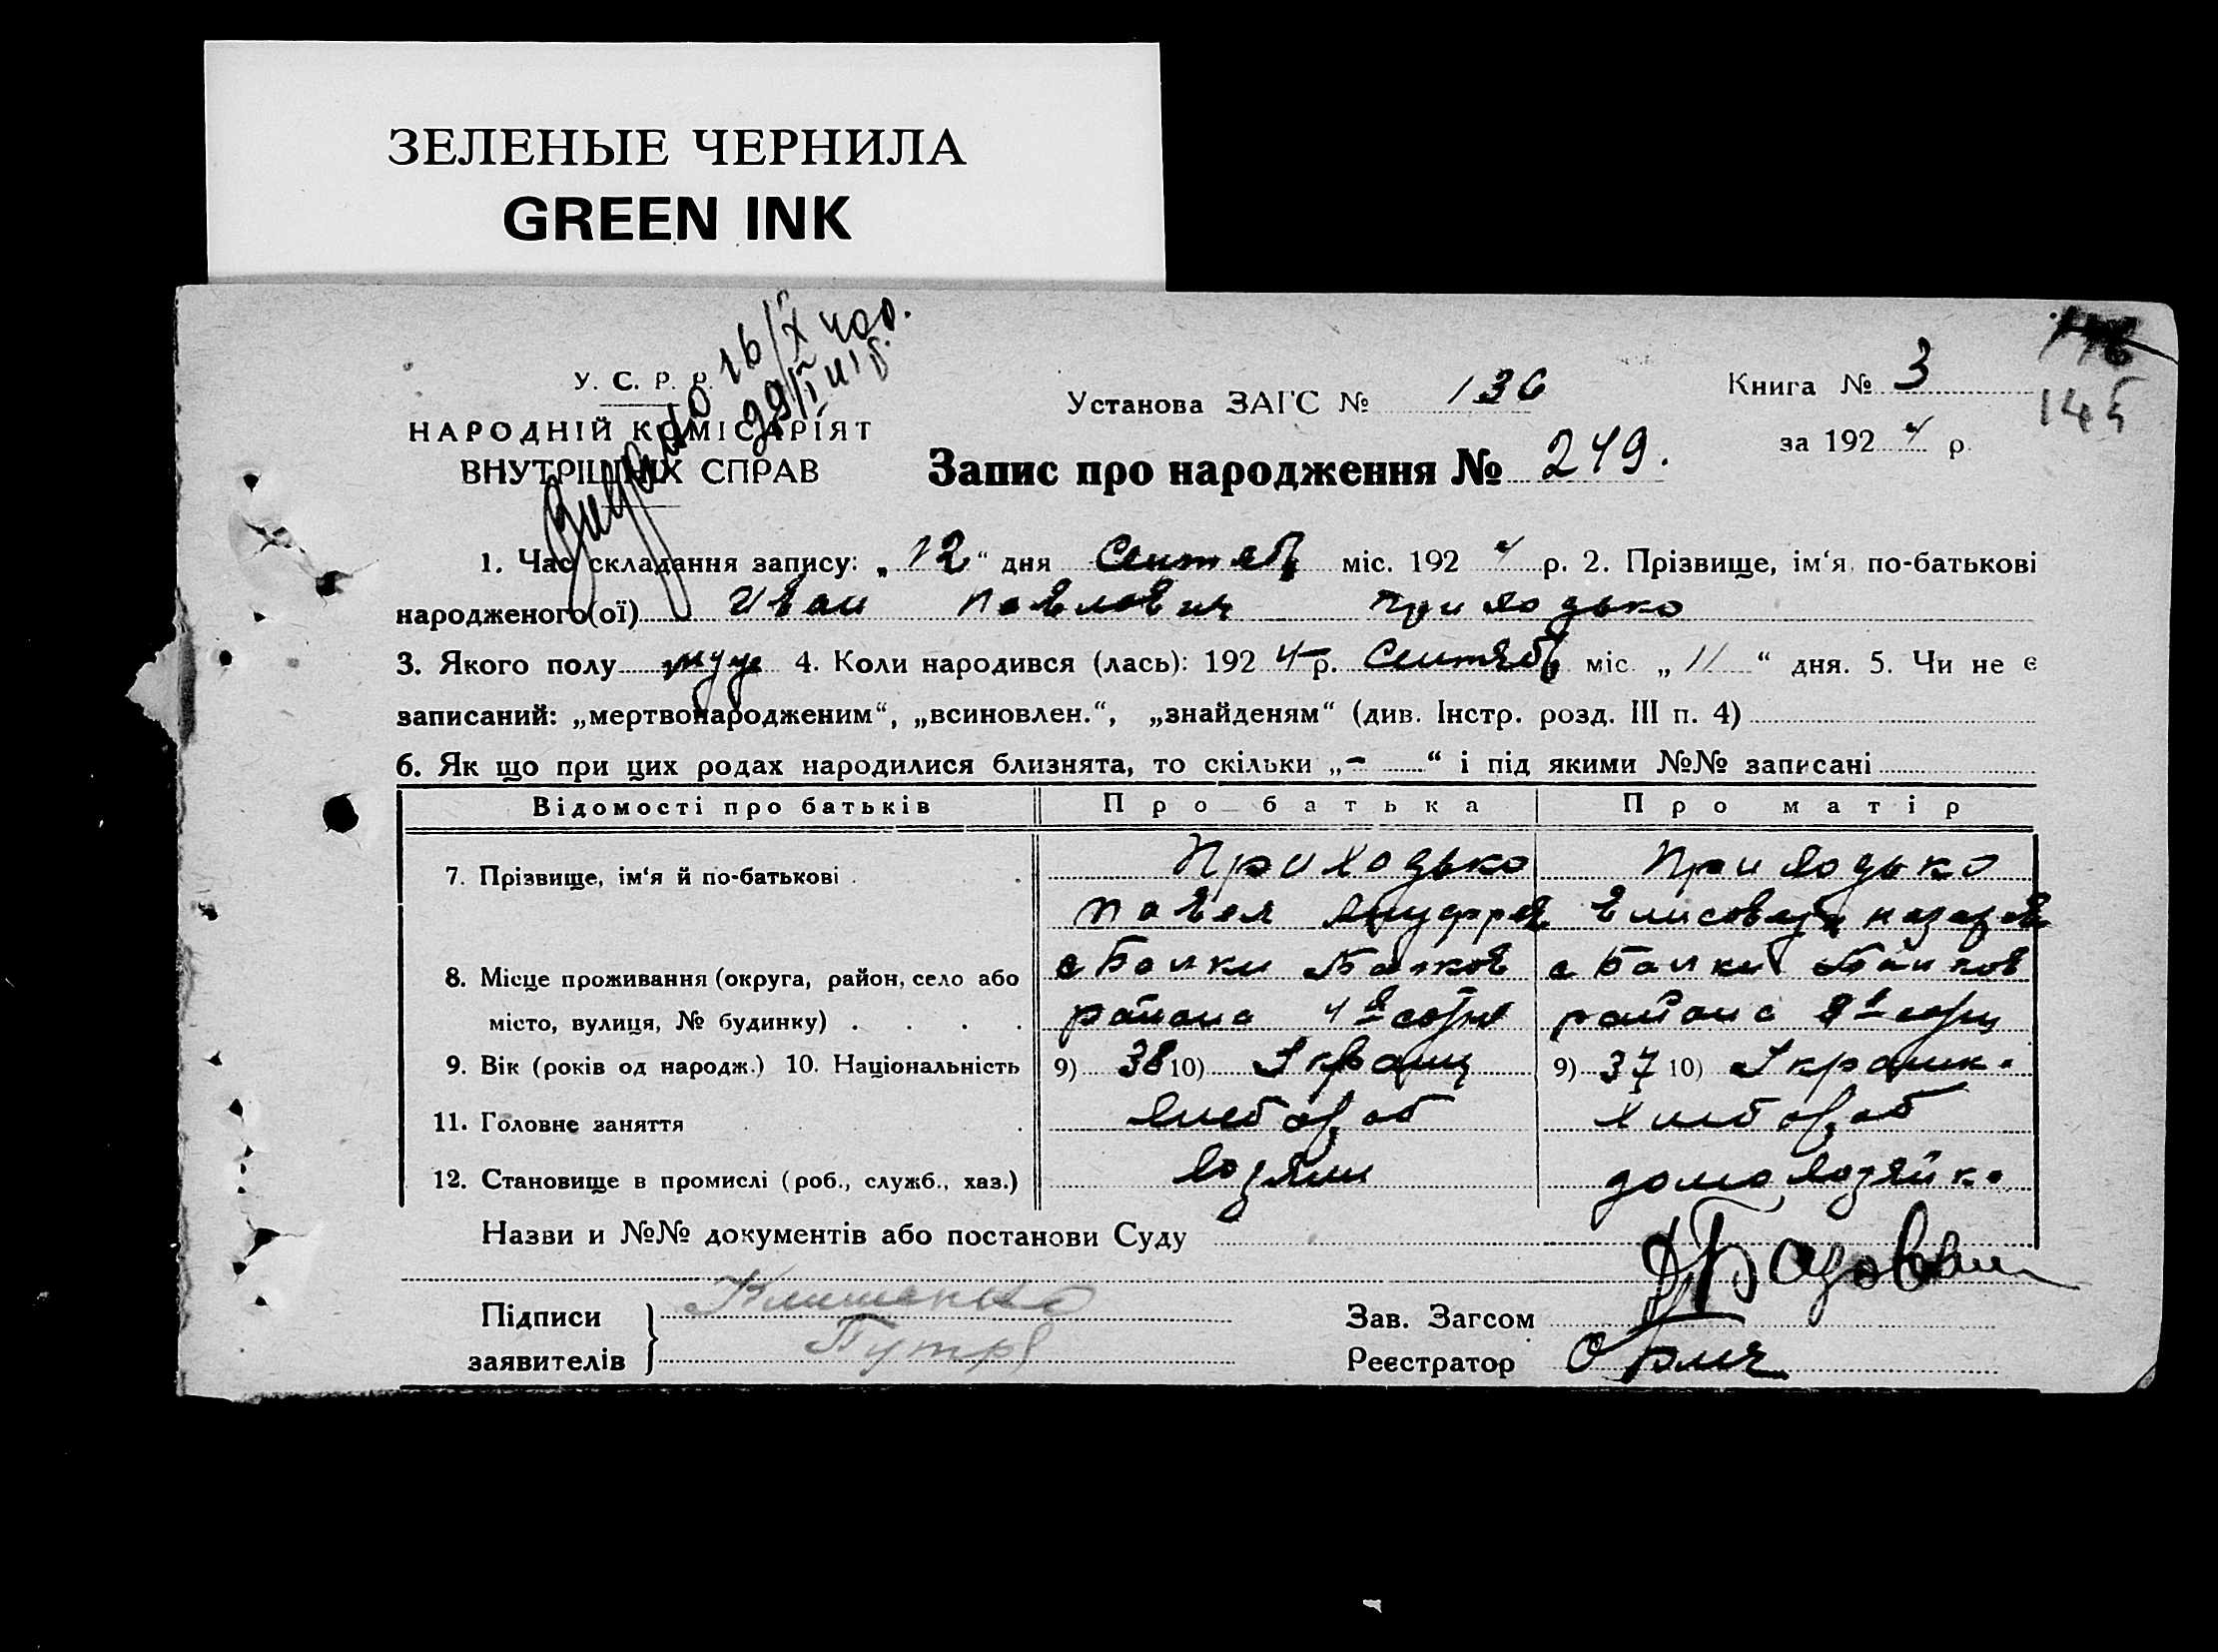 ЗЕЛЕНЫЕ ЧЕРНИЛА
GREEN INK
145
У. С. Р. Р.
НАРОДНІЙ КОМІСАРІЯТ
ВНУТРІШНІХ СПРАВ
Установа ЗАГС № 136
Книга № 3
за 1924 р.
Запис про народження № 249.
1. Час складання запису: „12“ дня Сентяб міс. 1924 р. 2. Прізвище, ім‘я по-батькові
народженого(ої) Иван Павлович Приходько
3. Якого полу муж 4. Коли народився (лась): 1924 р. Сентяб міс. „11“ дня. 5. Чи не є
записаний: „мертвонародженим“, „всиновлен.“, „знайденям“ (див. Інстр. розд. III п. 4)
6. Як що при цих родах народилися близнята, то скільки „-“ і під якими №№ записані
Відомості про батьків Про батька Про матір
7. Прізвище, ім‘я й по-батькові . . Приходько Приходько
Павел Ануфрев Елисовета Назаров
8. Місце проживання (округа, район, село або с Балки Балков с Балки Балков
місто, вулиця, № будинку) . . . . района 4й сотне района
9. Вік (років од народж.) 10. Національність 9) 38 10) Украинц 9) 37 10) Украинк.
11. Головне заняття . Хлебороб Хлебороб
12. Становище в промислі (роб., служб., хаз.) хозяин домохозяйка
Назви и №№ документів або постанови Суду
Підписи
заявителів
Зав. Загсом
Реєстратор